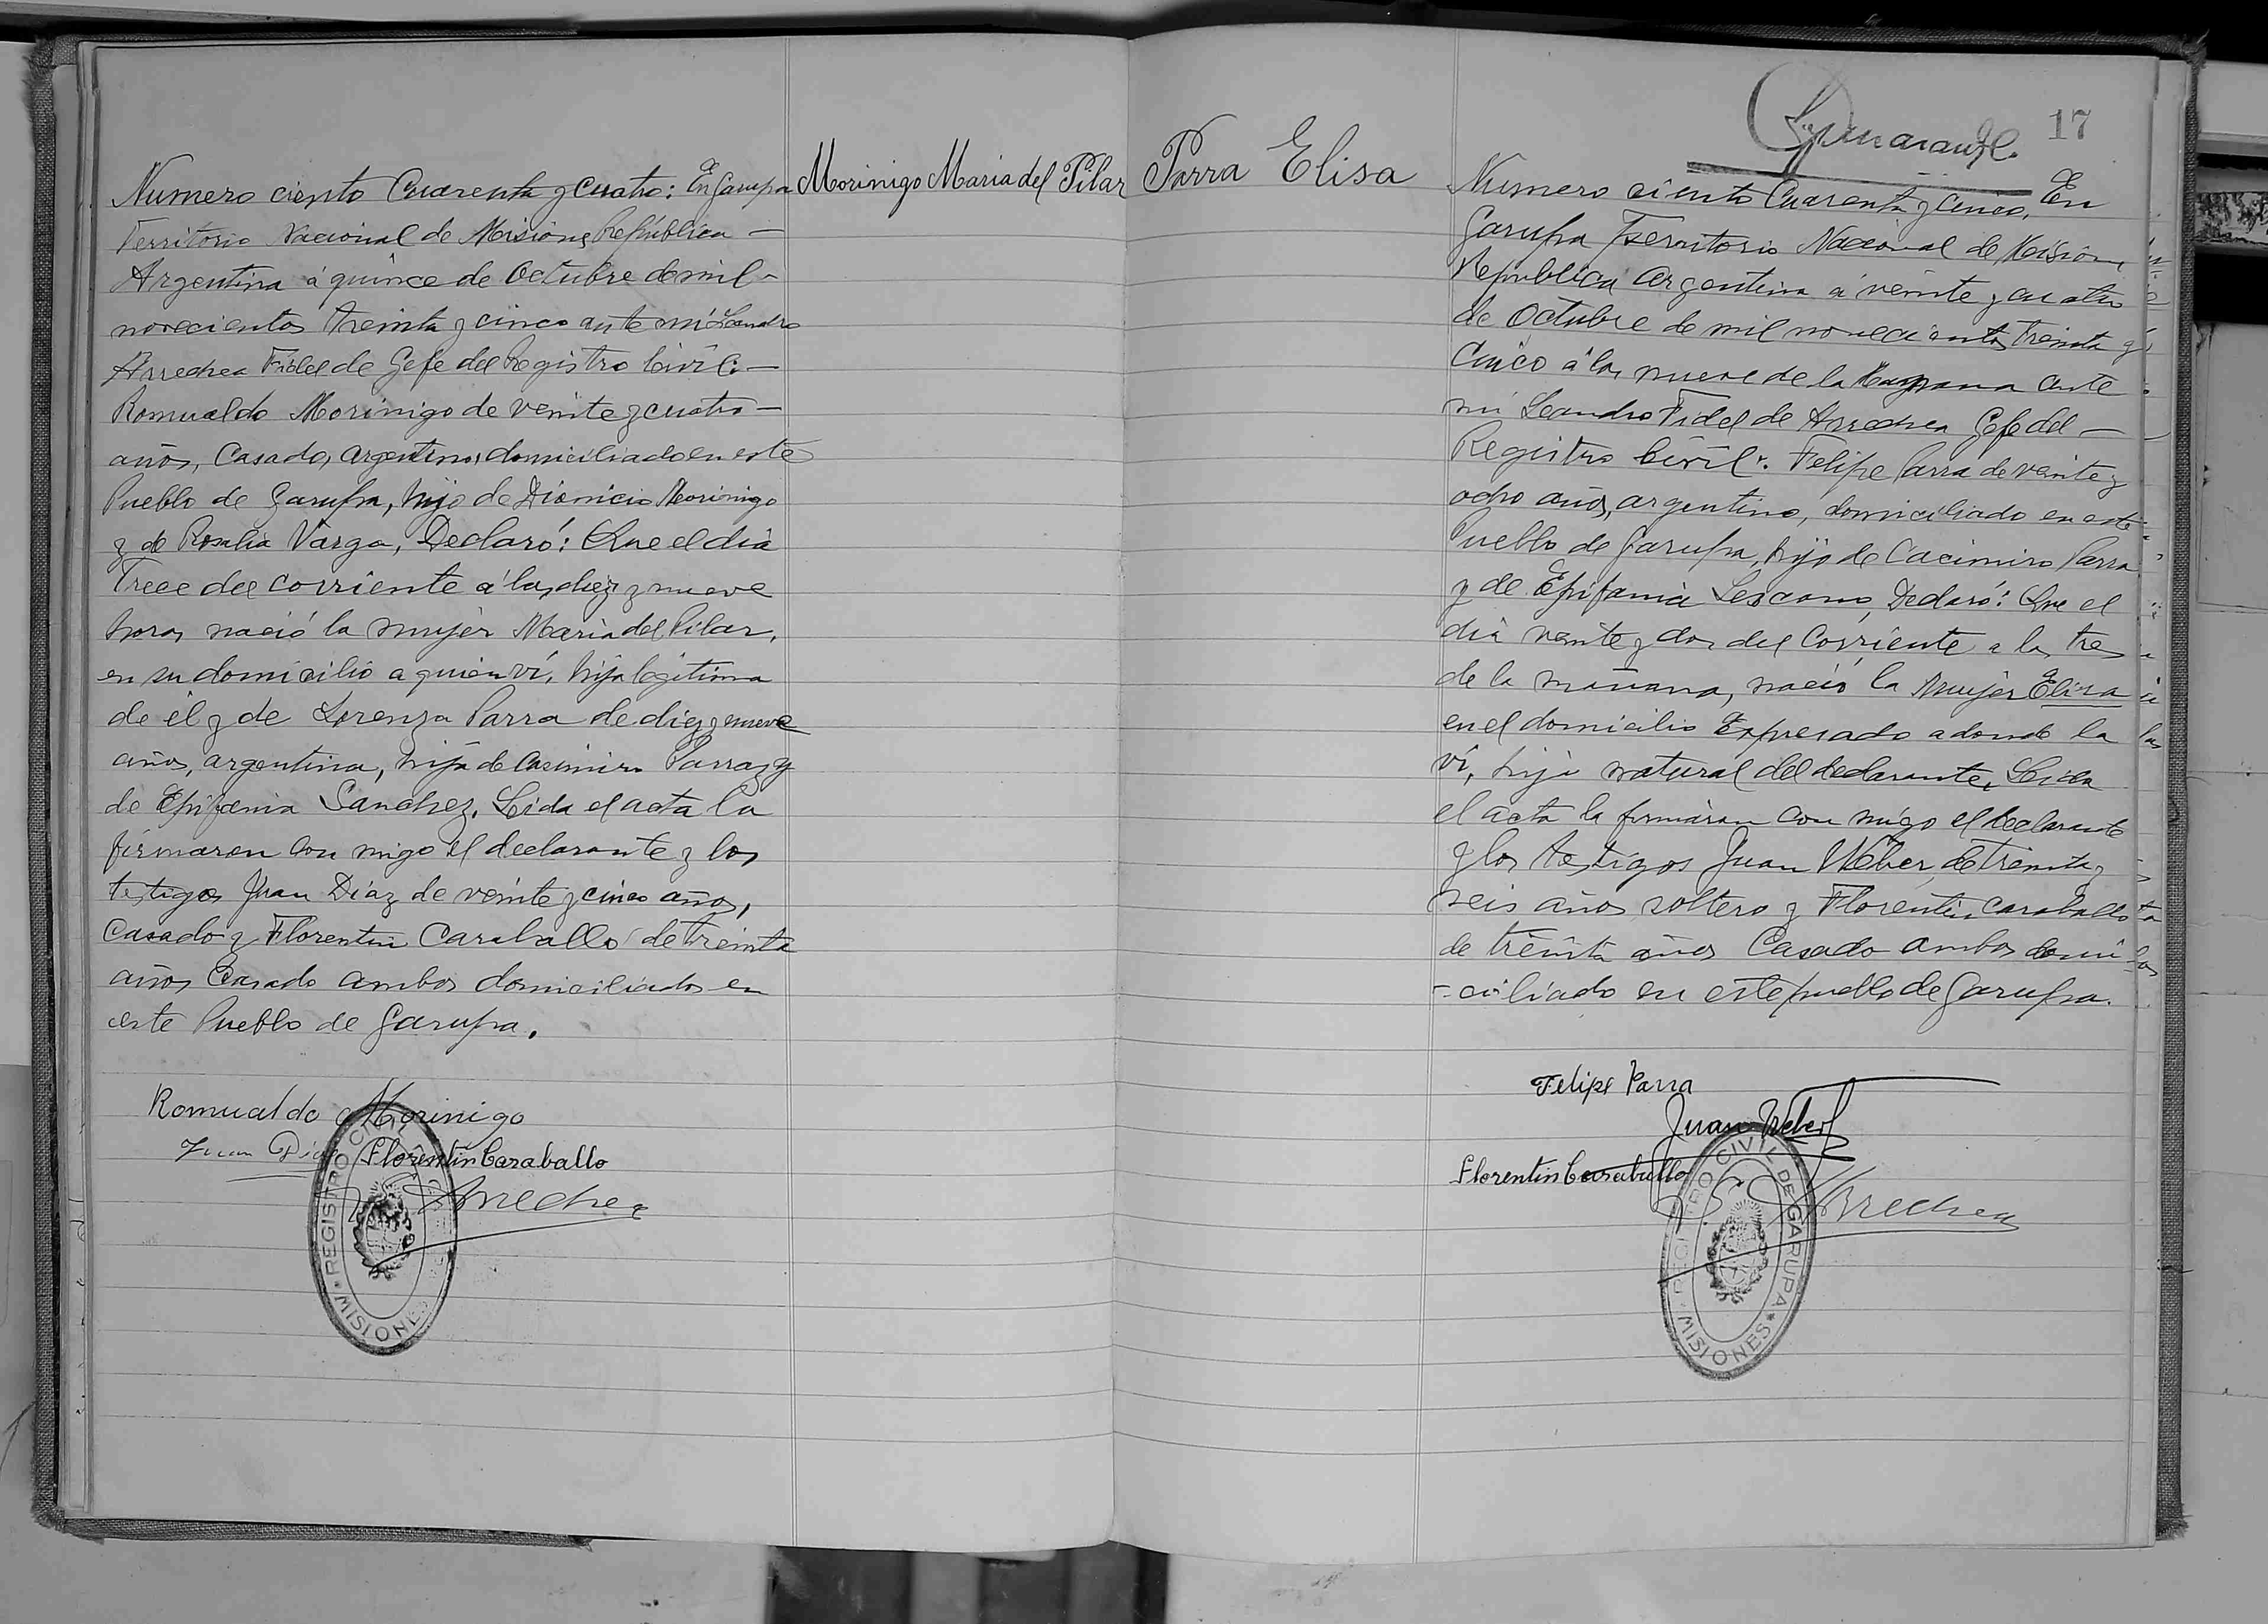 Numero ciento Cuarenta y cuatro: En Garupa
Territorio Nacional de Misiones Republica —
Argentina á quince de Octubre de mil -
novecientos treinta y cinco ante mi Leandro
Arrechea Fidel de Gefe del Registro Civil: —
Romualdo Morinigo de veinte y cuatro —
años, Casado, argentino, domiciliado en este
Pueblo de Garupa, hijo de Dionicio Morinigo
y de Rosalia Varga, Declaró: Que el dia
Trece del corriente a las diez y nueve
horas nació la mujer Maria del Pilar,
en su domicilio a quien ví, hija legitima
de él y de Lorenza Parra de diez y nueve
años, argentina, hija de Casimiro Parra y
de Epifania Sanchez. Leida el acta la
firmaron con migo el declarante y los
testigos Juan Diaz de veinte y cinco años,
Casado y Florentin Caraballo de treinta
años Casado ambos domiciliados en
este Pueblo de Garupa.
Romualdo Morinigo
Juan Diaz Florentin Caraballo
Arrechea
REGISTRO CIVIL
MISIONES
Morinigo Maria del Pilar
Parra Elisa
17
Numero ciento Cuarenta y cinco. En
Garupa Territorio Nacional de Misiones
Republica Argentina a veinte y cuatro
de Octubre de mil novecientos treinta y
Cinco á las nueve de la Mañana ante
mi Leandro Fidel de Arrechea Gefe del —
Registro Civil: Felipe Parra de veinte y
ocho años, argentino, domiciliado en este
Pueblo de Garupa, hijo de Cacimiro Parra
y de Epifania Lescano, Declaró: Que el
dia veinte y dos del Corriente a las tres
de la mañana, nació la mujer Elisa
en el domicilio Expresado adonde la
ví, hija natural del declarante, Leida
el acta la firmaron con migo el declarante
y los testigos Juan Weber, de treinta y
seis años soltero y Florentin Caraballo
de treinta años Casado ambos domi
- ciliado en este pueblo de Garupa.
Felipe Parra
Juan Weber
Florentin Caraballo
Arrechea
REGISTRO CIVIL DE GARUPA
MISIONES